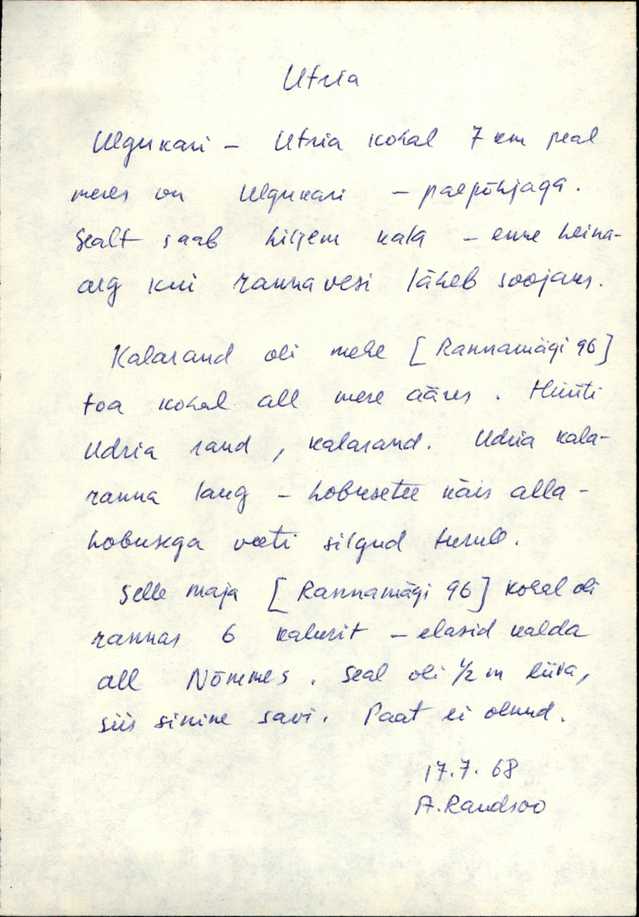 Utria
Ulgukari - Utria kohal 7 km peal
meres on Ulgukari - paepõhjaga.
Sealt saab hiljem kala - enne heina-
aeg kui rannavesi läheb soojaks.
Kalarand oli meke [Rannamägi 96]
toa kohal all mere ääres. Hüüti
Udria rand, kalarand. Udria kala-
ranna lang - hobusetee käis alla -
hobusega veeti silgud turule.
Selle maja [Rannamägi 96] kohal oli
rannas 6 kalurit - elasid kalda
all Nõmmes. Seal oli 1/2 m liiva,
siis sinine savi. Paat ei olnud.
17.7.68
A. Randsoo